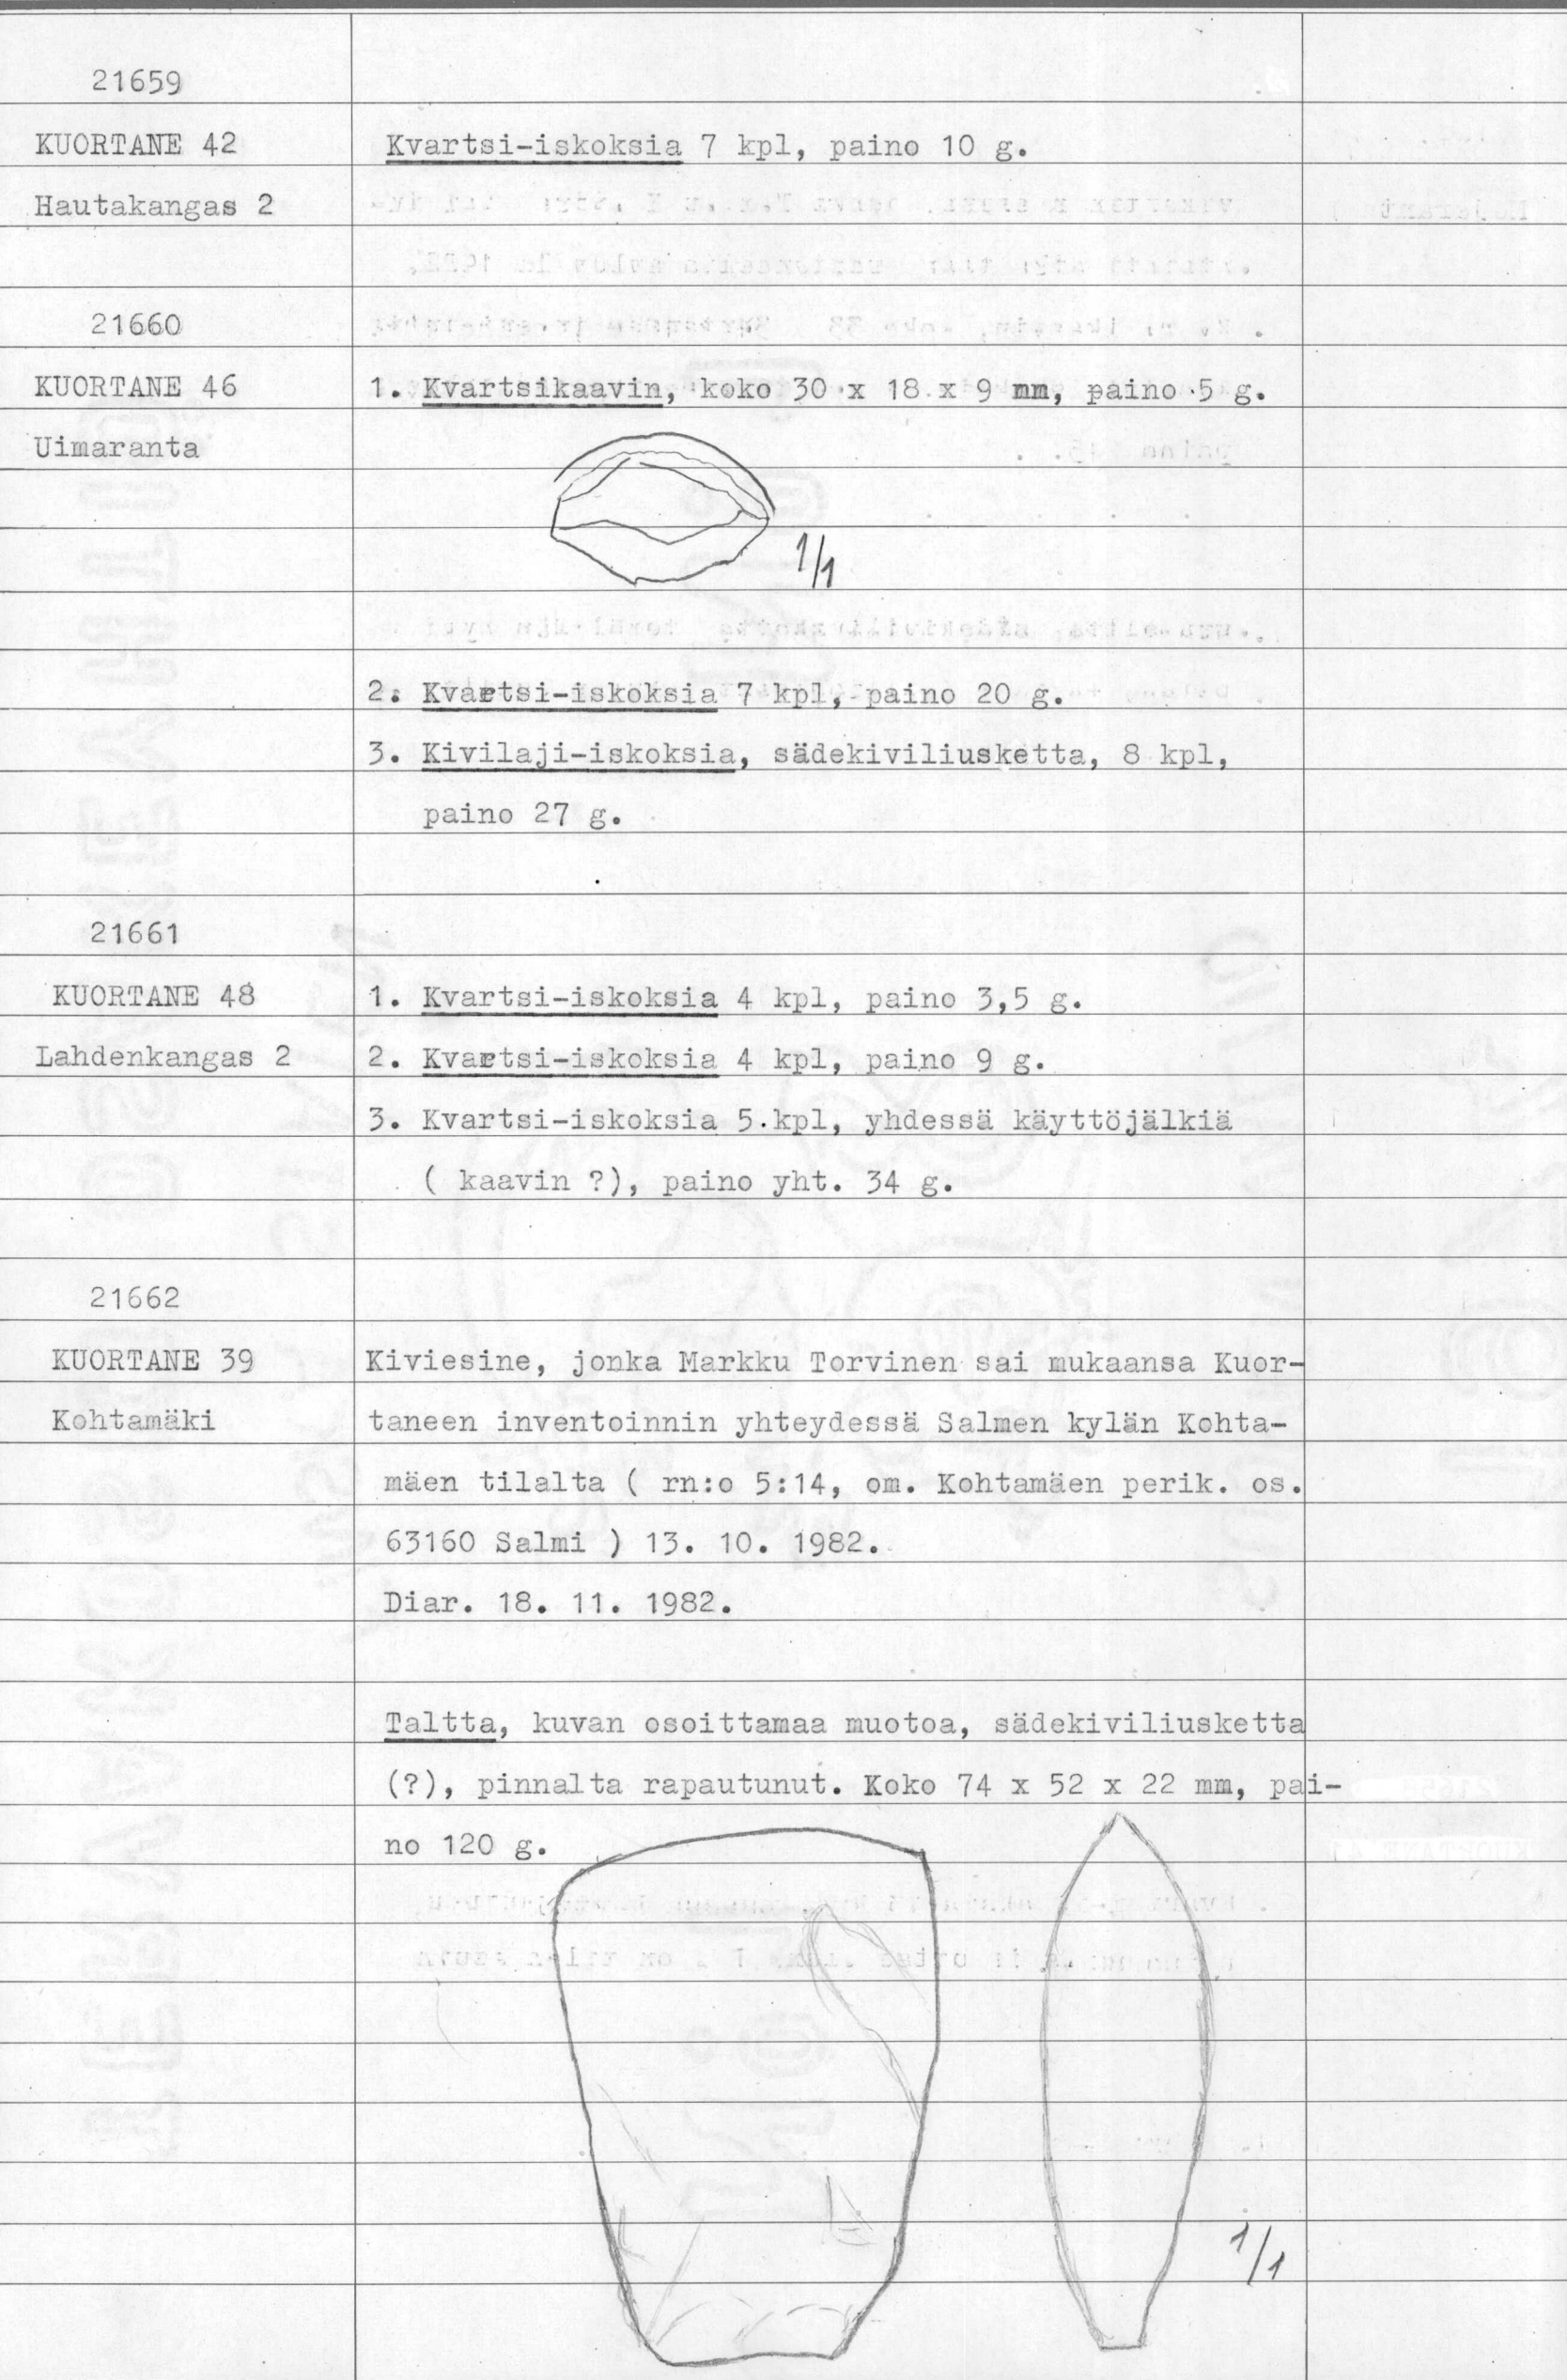 21659
KUORTANE 42 Kvartsi-iskoksia 7 kpl, paino 10 g.
Hautakangas 2
21660
KUORTANE 46 1. Kvartsikaavin, koko 30 x 18 x 9 mm, paino 5 g.
Uimaranta
1/1
2. Kvartsi-iskoksia 7 kpl, paino 20 g.
3. Kivilaji-iskoksia, sädekiviliusketta, 8 kpl,
paino 27 g.
21661
KUORTANE 48 1. Kvartsi-iskoksia 4 kpl, paino 3,5 g.
Lahdenkangas 2 2. Kvartsi-iskoksia 4 kpl, paino 9 g.
3. Kvartsi-iskoksia 5 kpl, yhdessä käyttöjälkiä
( kaavin ?), paino yht. 34 g.
21662
KUORTANE 39 Kiviesine, jonka Markku Torvinen sai mukaansa Kuor-
Kohtamäki taneen inventoinnin yhteydessä Salmen kylän Kohta-
mäen tilalta ( rn:o 5:14, om. Kohtamäen perik. os.
63160 Salmi ) 13. 10. 1982.
Diar. 18. 11. 1982.
Taltta, kuvan osoittamaa muotoa, sädekiviliusketta
(?), pinnalta rapautunut. Koko 74 x 52 x 22 mm, pai-
no 120 g.
1/1